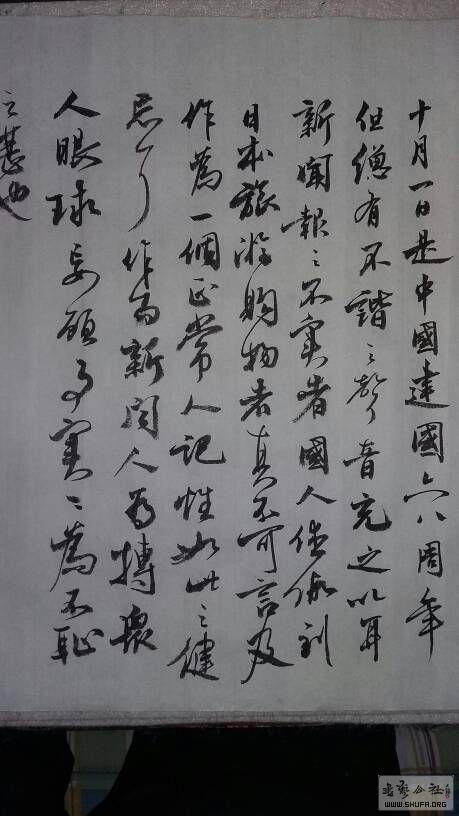 十月一日是中國建國六八周年
但總有不諧之聲音充之以耳
新聞報之不實者國人住佩到
日本旅游購物者真不可言及
作為一個正常人記性如此之健
忘乎作為新闻人為搏眾
人眼球妄顧事實之為不恥
之甚也
書艺公社
WWW.SHUFA.ORG